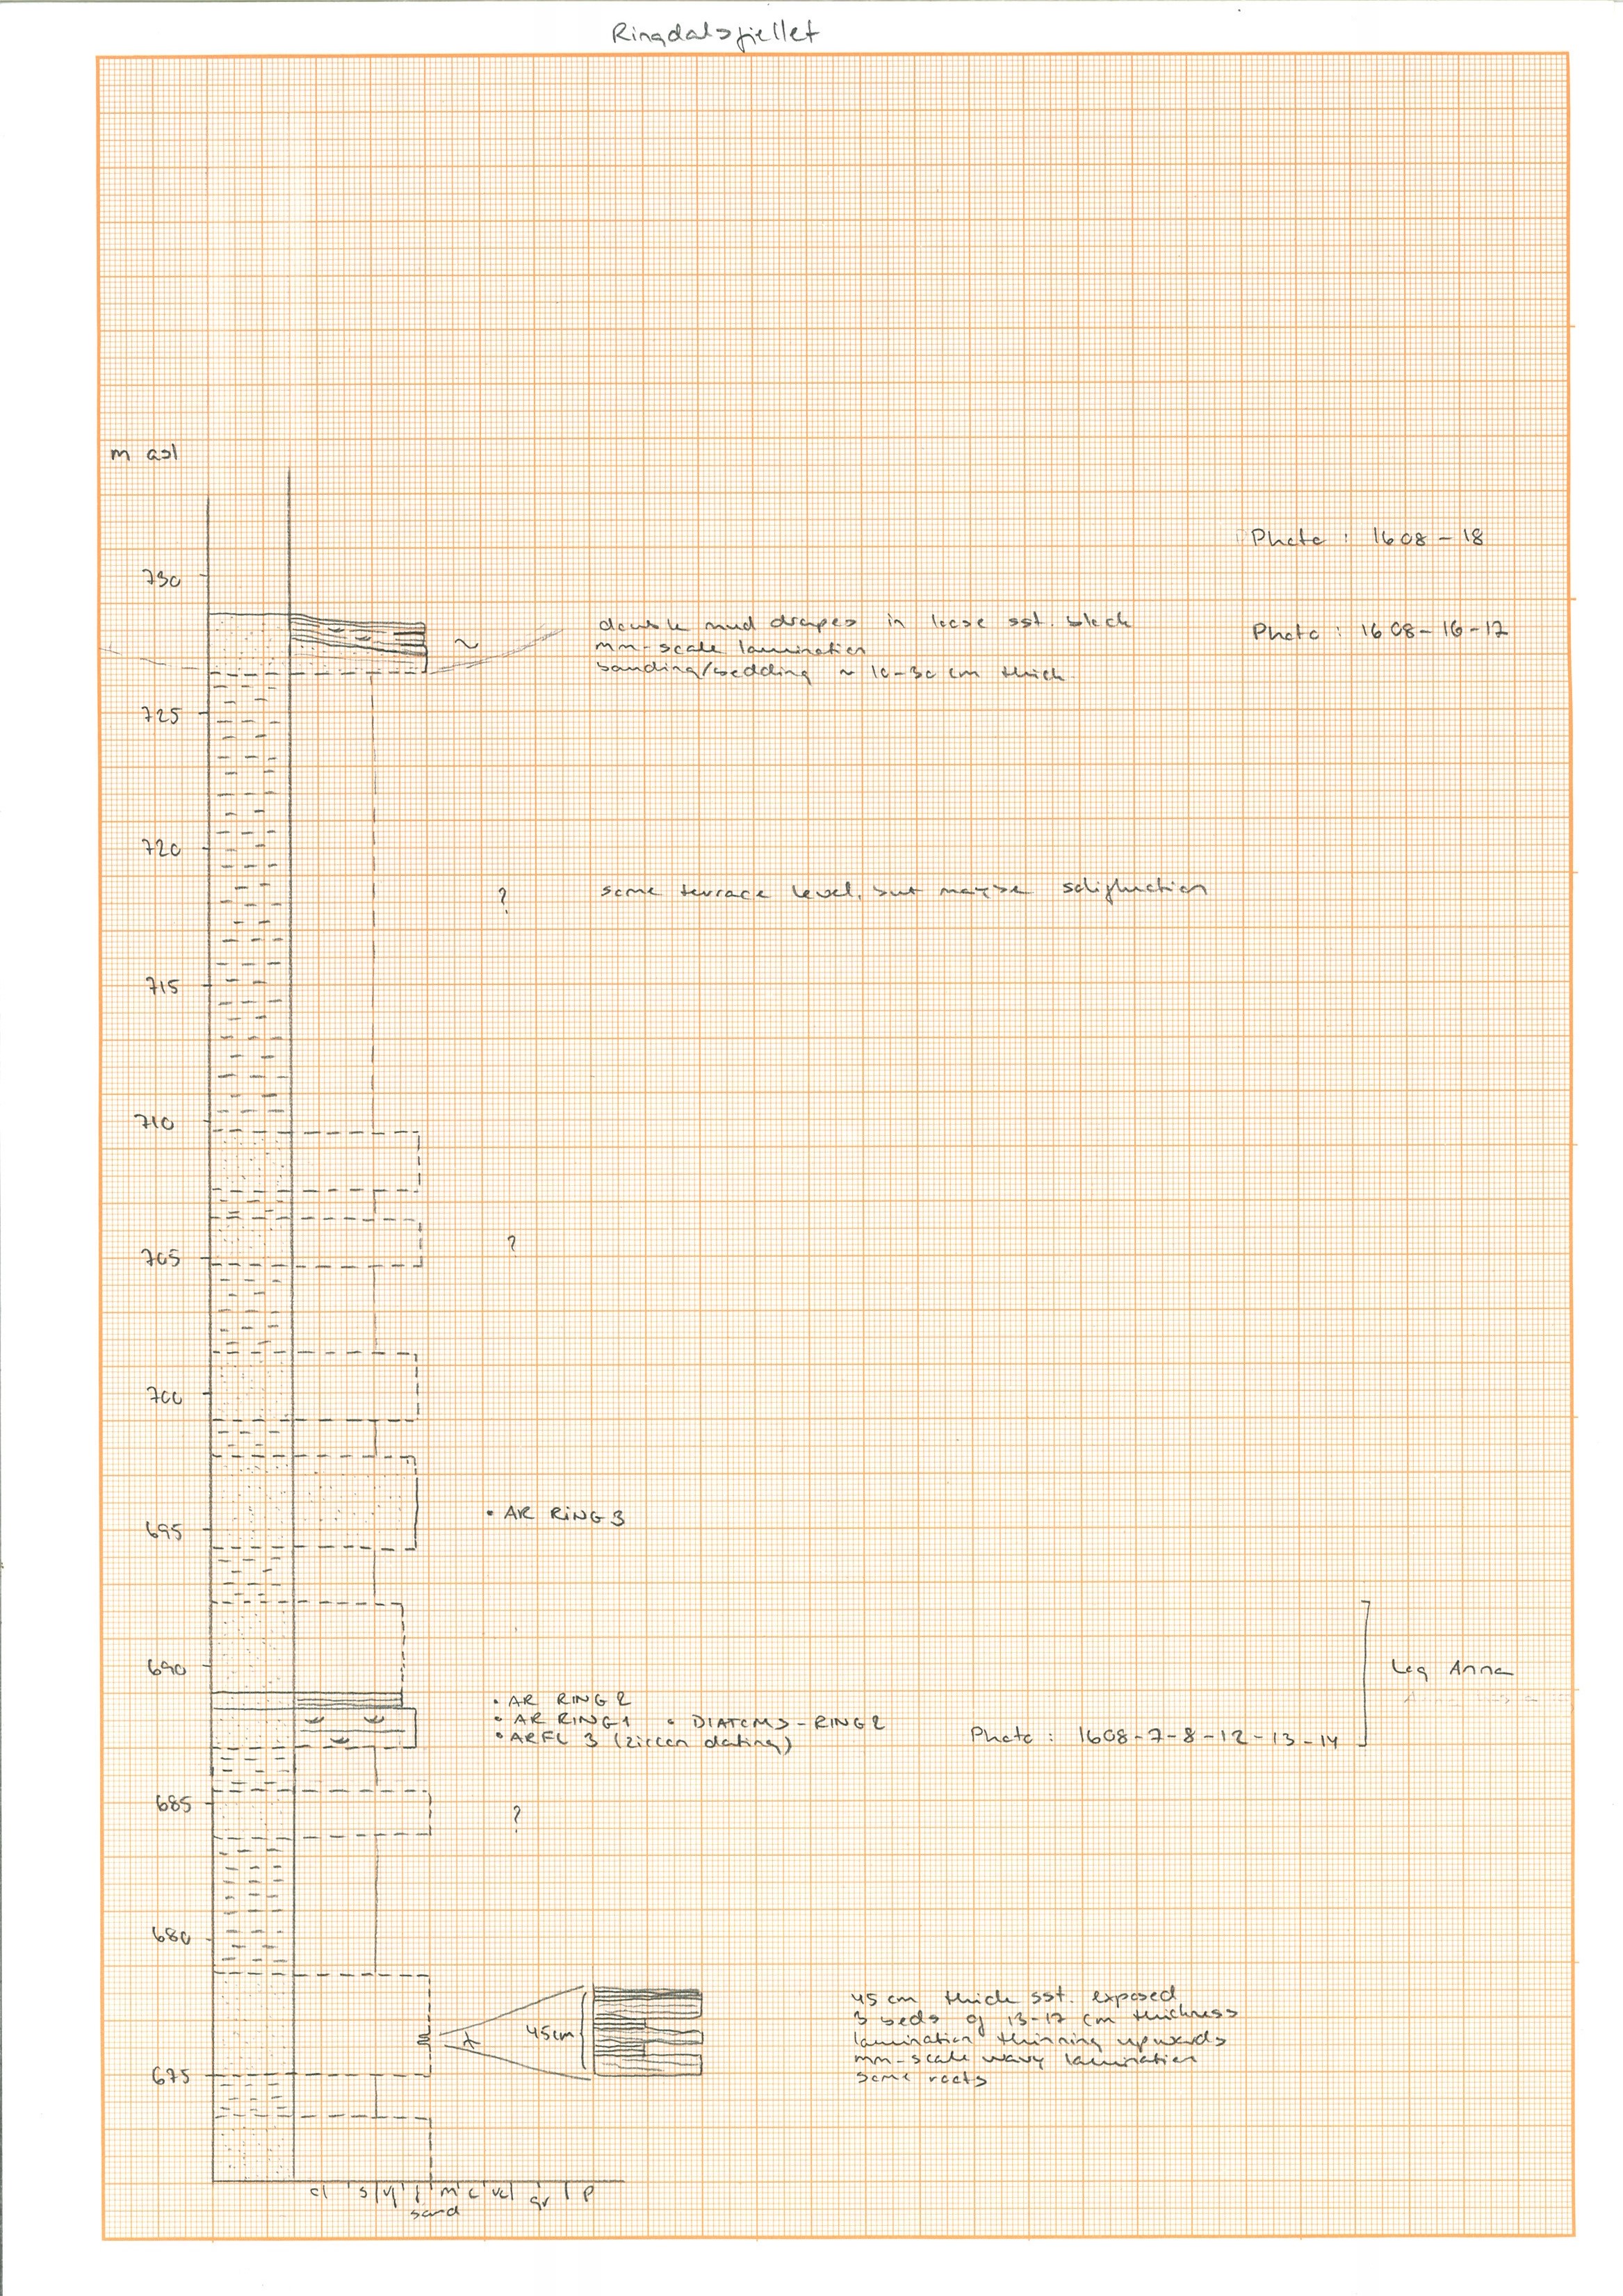 Ringdalsfjellet
m asl
Photo : 1608 - 18
730
double mud drapes in loose sst. block
mm-scale lamination
banding/bedding ~ 10-30 cm thick
Photo : 1608-16-17
~
725
720
? some terrace level, but maybe solifluction
715
710
705
?
700
• AR RING3
695
690
Log Anna
• AR RING2
• AR RING1 • DIATOMS-RING2
• ARFL 3 (zircon dating)
Photo : 1608-7-8-12-13-14
685
?
680
45cm
45 cm thick sst. exposed
3 beds of 13-17 cm thickness
lamination thinning upwards
mm-scale wavy lamination
some roots
675
cl s vf f m c vc gr p
sand